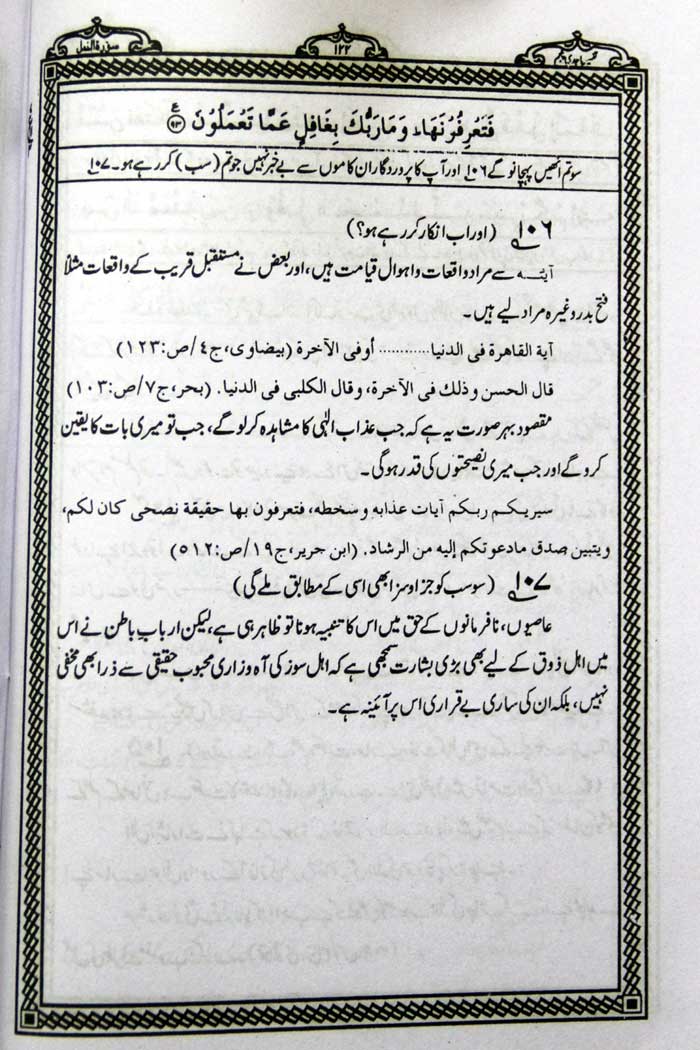 سورۃ النمل
۱۲۲
تفسیر ماجدی پنجم
فَتَعْرِفُوْنَهَا ؕ وَمَا رَبُّكَ بِغَافِلٍ عَمَّا تَعْمَلُوْنَ ﴿۹۳﴾ ع
سو تم انھیں پہچانو گے ۱۰۶ اور آپ کا پروردگار ان کاموں سے بے خبر نہیں جو تم (سب) کر رہے ہو۔ ۱۰۷
۱۰۶ (اور اب انکار کر رہے ہو؟)
آیٰتہ سے مراد واقعات و احوال قیامت ہیں، اور بعض نے مستقبل قریب کے واقعات مثلاً
فتح بدر وغیرہ مراد لیے ہیں۔
آیة القاهرة فی الدنیا........... أوفی الآخرة (بیضاوی، ج٤/ص:١٢٣)
قال الحسن وذلك فی الآخرة، وقال الکلبی فی الدنیا. (بحر، ج٧/ص:١٠٣)
مقصود بہر صورت یہ ہے کہ جب عذاب الٰہی کا مشاہدہ کر لو گے، جب تو میری بات کا یقین
کرو گے اور جب میری نصیحتوں کی قدر ہو گی۔
سیریکم ربکم آیات عذابه وسخطه، فتعرفون بها حقیقة نصحی کان لکم،
ویتبین صدق مادعوتکم إلیه من الرشاد. (ابن جریر، ج١٩/ص:٥١٢)
۱۰۷ (سو سب کو جزا و سزا بھی اسی کے مطابق ملے گی)
عاصیوں، نافرمانوں کے حق میں اس کا تنبیہ ہونا تو ظاہر ہی ہے، لیکن ارباب باطن نے اس
میں اہل ذوق کے لیے بھی بڑی بشارت سمجھی ہے کہ اہل سوز کی آہ و زاری محبوب حقیقی سے ذرا بھی مخفی
نہیں، بلکہ ان کی ساری بے قراری اس پر آئینہ ہے۔